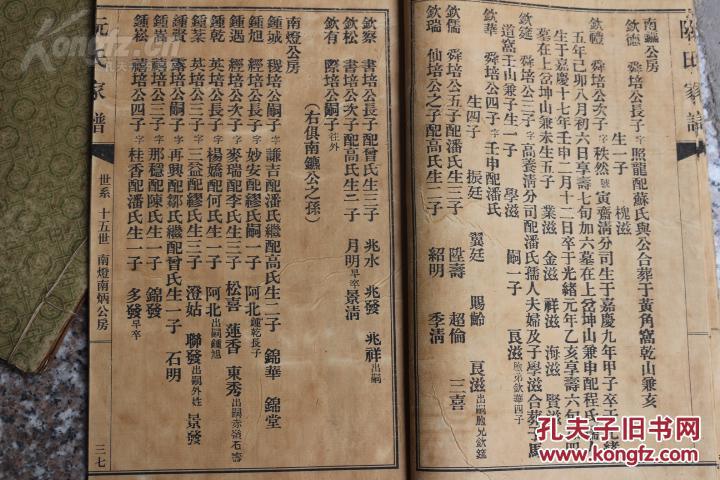 南鑣公房
欽德 舜培公長子字照龍配蘇氏與公合葬于黃角窩乾山兼亥
生一子 槐滋
欽禮 舜培公次子字秩然號寅齋清分司生于嘉慶九年甲子卒于光緒
五年己卯八月初六日享壽七旬加六墓在上岔坤山兼申配程氏
生于嘉慶十七年壬申二月十二日卒于光緒元年乙亥享壽六旬
墓在上岔坤山兼未生五子 業滋 金滋 祥滋 海滋 賢滋
欽筵 舜培公三子字高養清分司配潘氏孺人夫婦及子學滋合葬子馬
道窩壬山兼子生一子 學滋 嗣一子 良滋胞弟欽華四子
欽華 舜培公四子字壬申配潘氏
生四子 振廷 翼廷 賜齡 良滋出嗣胞兄欽筵
欽儒 舜培公五子配潘氏生三子 陞壽 超倫 三喜
欽瑞 仙培公之子配高氏生二子 紹明 季清
欽察 書培公長子配曾氏生三子 兆水 兆發 兆祥出嗣
欽松 書培公次子配高氏生二子 月明早卒 景清
欽有 際培公嗣子往外
(右俱南鑣公之孫)
南燈公房
鍾城 稷培公嗣子字謙吉配潘氏繼配高氏生二子 錦華 錦堂
鍾旭 稷培公長子字妙安配繆氏嗣一子 阿北鍾乾長子
鍾遇 稷培公次子字麥瑞配李氏生三子 松喜 蓮香 東秀出嗣赤嶺石壽
鍾乾 英培公長子字楊嬌配何氏生一子 阿北出嗣鍾旭
鍾葇 英培公三子字三益配繆氏生三子 澄姑 聯發出嗣外姓 景發
鍾賚 壽培公嗣子字再興配鄒氏繼配曾氏生一子 石明
鍾嵩 禧培公三子字那穩配陳氏生一子 錦發
鍾嵜 禧培公四子字桂香配潘氏生一子 多發早卒
阮氏家譜
世系 十五世 南燈南炳公房
三七
孔夫子旧书网
www.kongfz.com